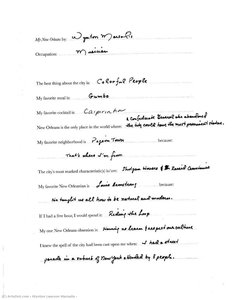 My New Orleans by: Wynton Marsalis
Occupation: Musician
The best thing about the city is: Colorful People
My favorite meal is: Gumbo
My favorite cocktail is:
New Orleans is the only place in the world where: a Confederate General who abandoned
the city would have the most prominent statue.
My favorite neighborhood is Pigeon Town because:
that's where I'm from
The city's most marked characteristic(s) is/are: Shotgun Houses & Racial
My favorite New Orleanian is Louis Armstrong because:
He taught us all how to be natural and modern.
If I had a few hours, I would spend it: Riding the Loop
My one New Orleans obsession is:
I knew the spell of the city had been cast upon me when: I had a
parade in attended by 8 people.